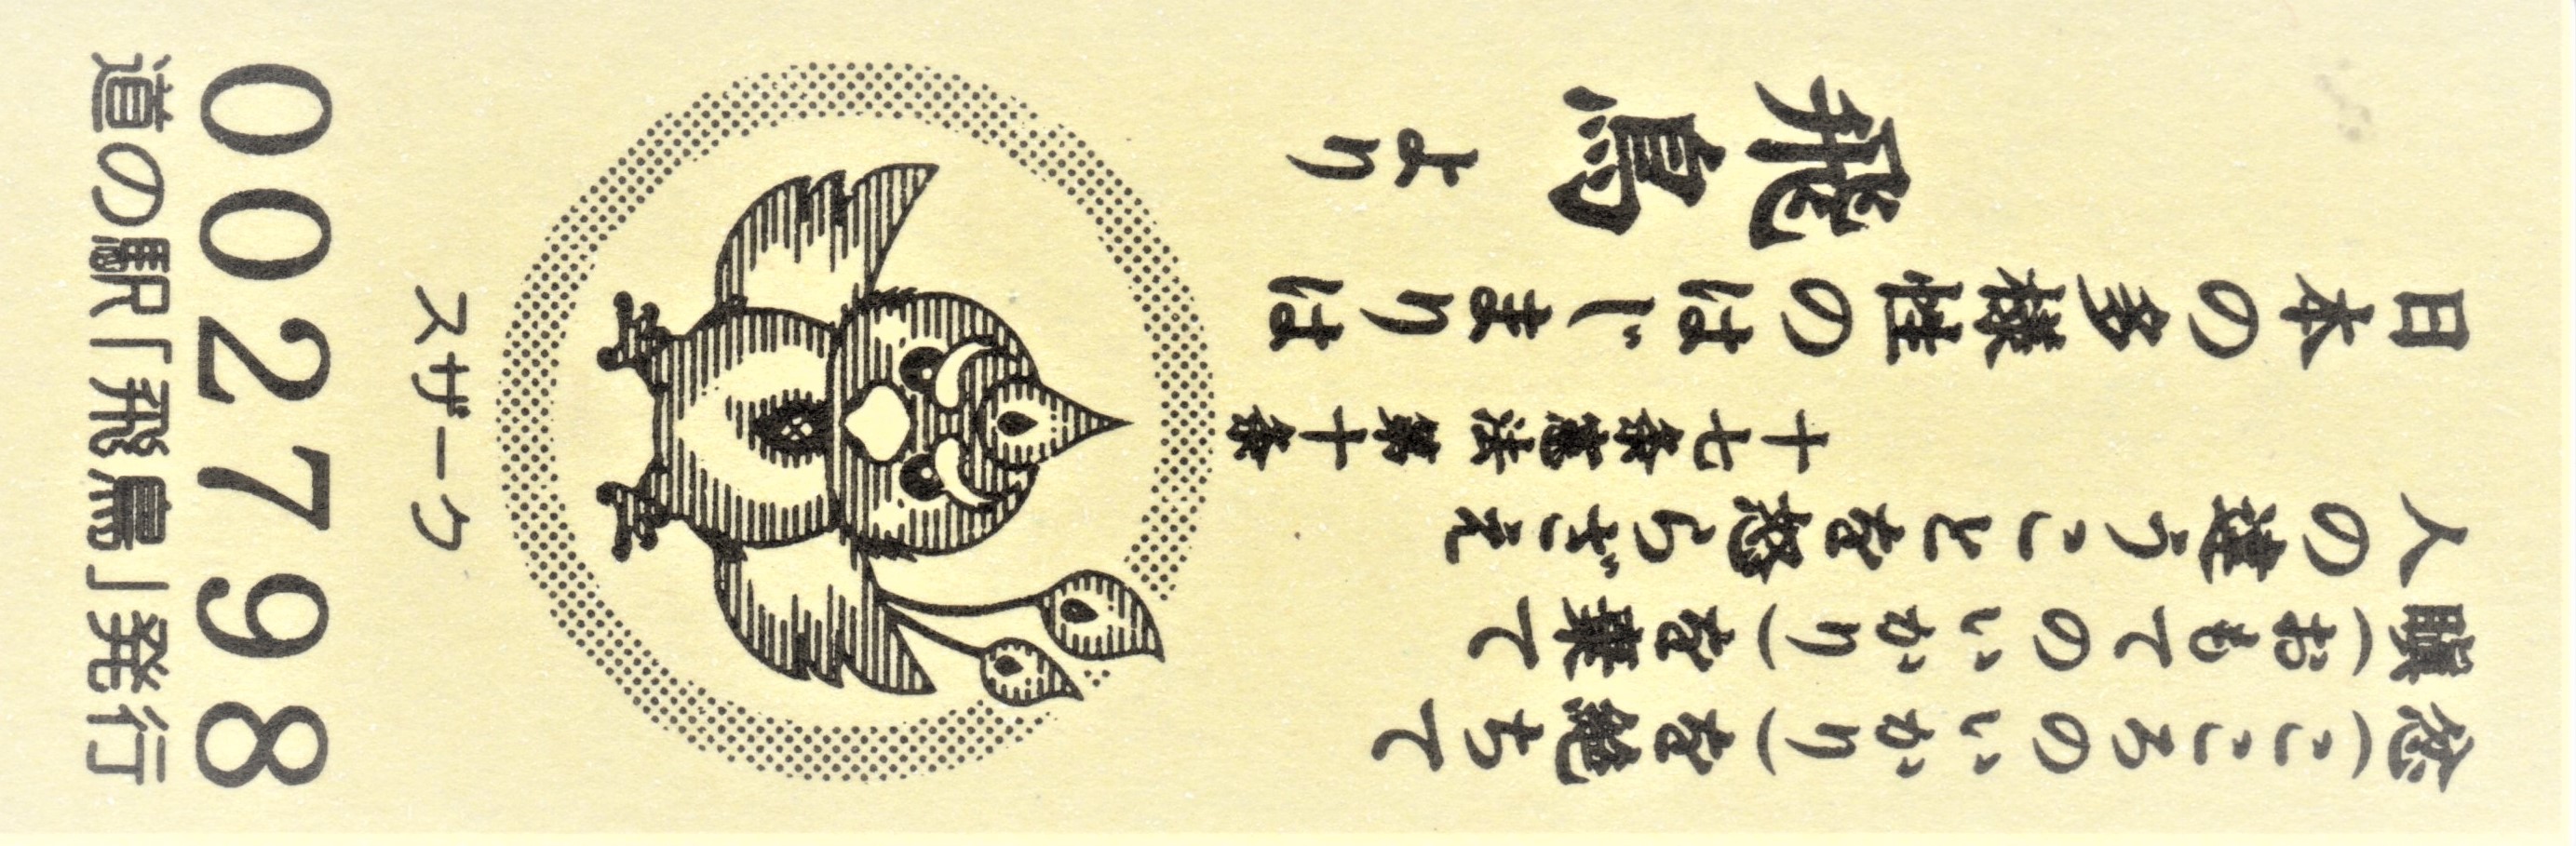 忿(こころのいかり)を絶ちて
瞋(おもてのいかり)を棄て
人の違うことを怒らざれ
十七条憲法 第十条
日本の多様性のはじまりは
飛鳥
より
スザーク
002798
道の駅「飛鳥」発行